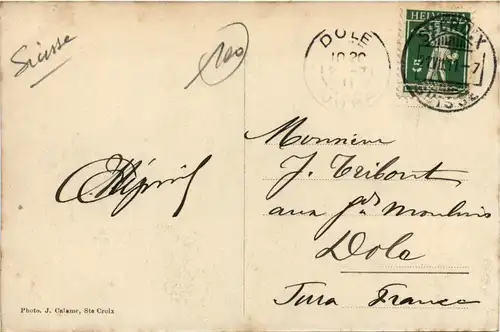 Suisse
100
DOLE
10 30
JURA
HELVETIA
5
Monsieur
J. Tribout
aux Gds Moulins
Dole
Jura France
Photo. J. Calame, Ste Croix